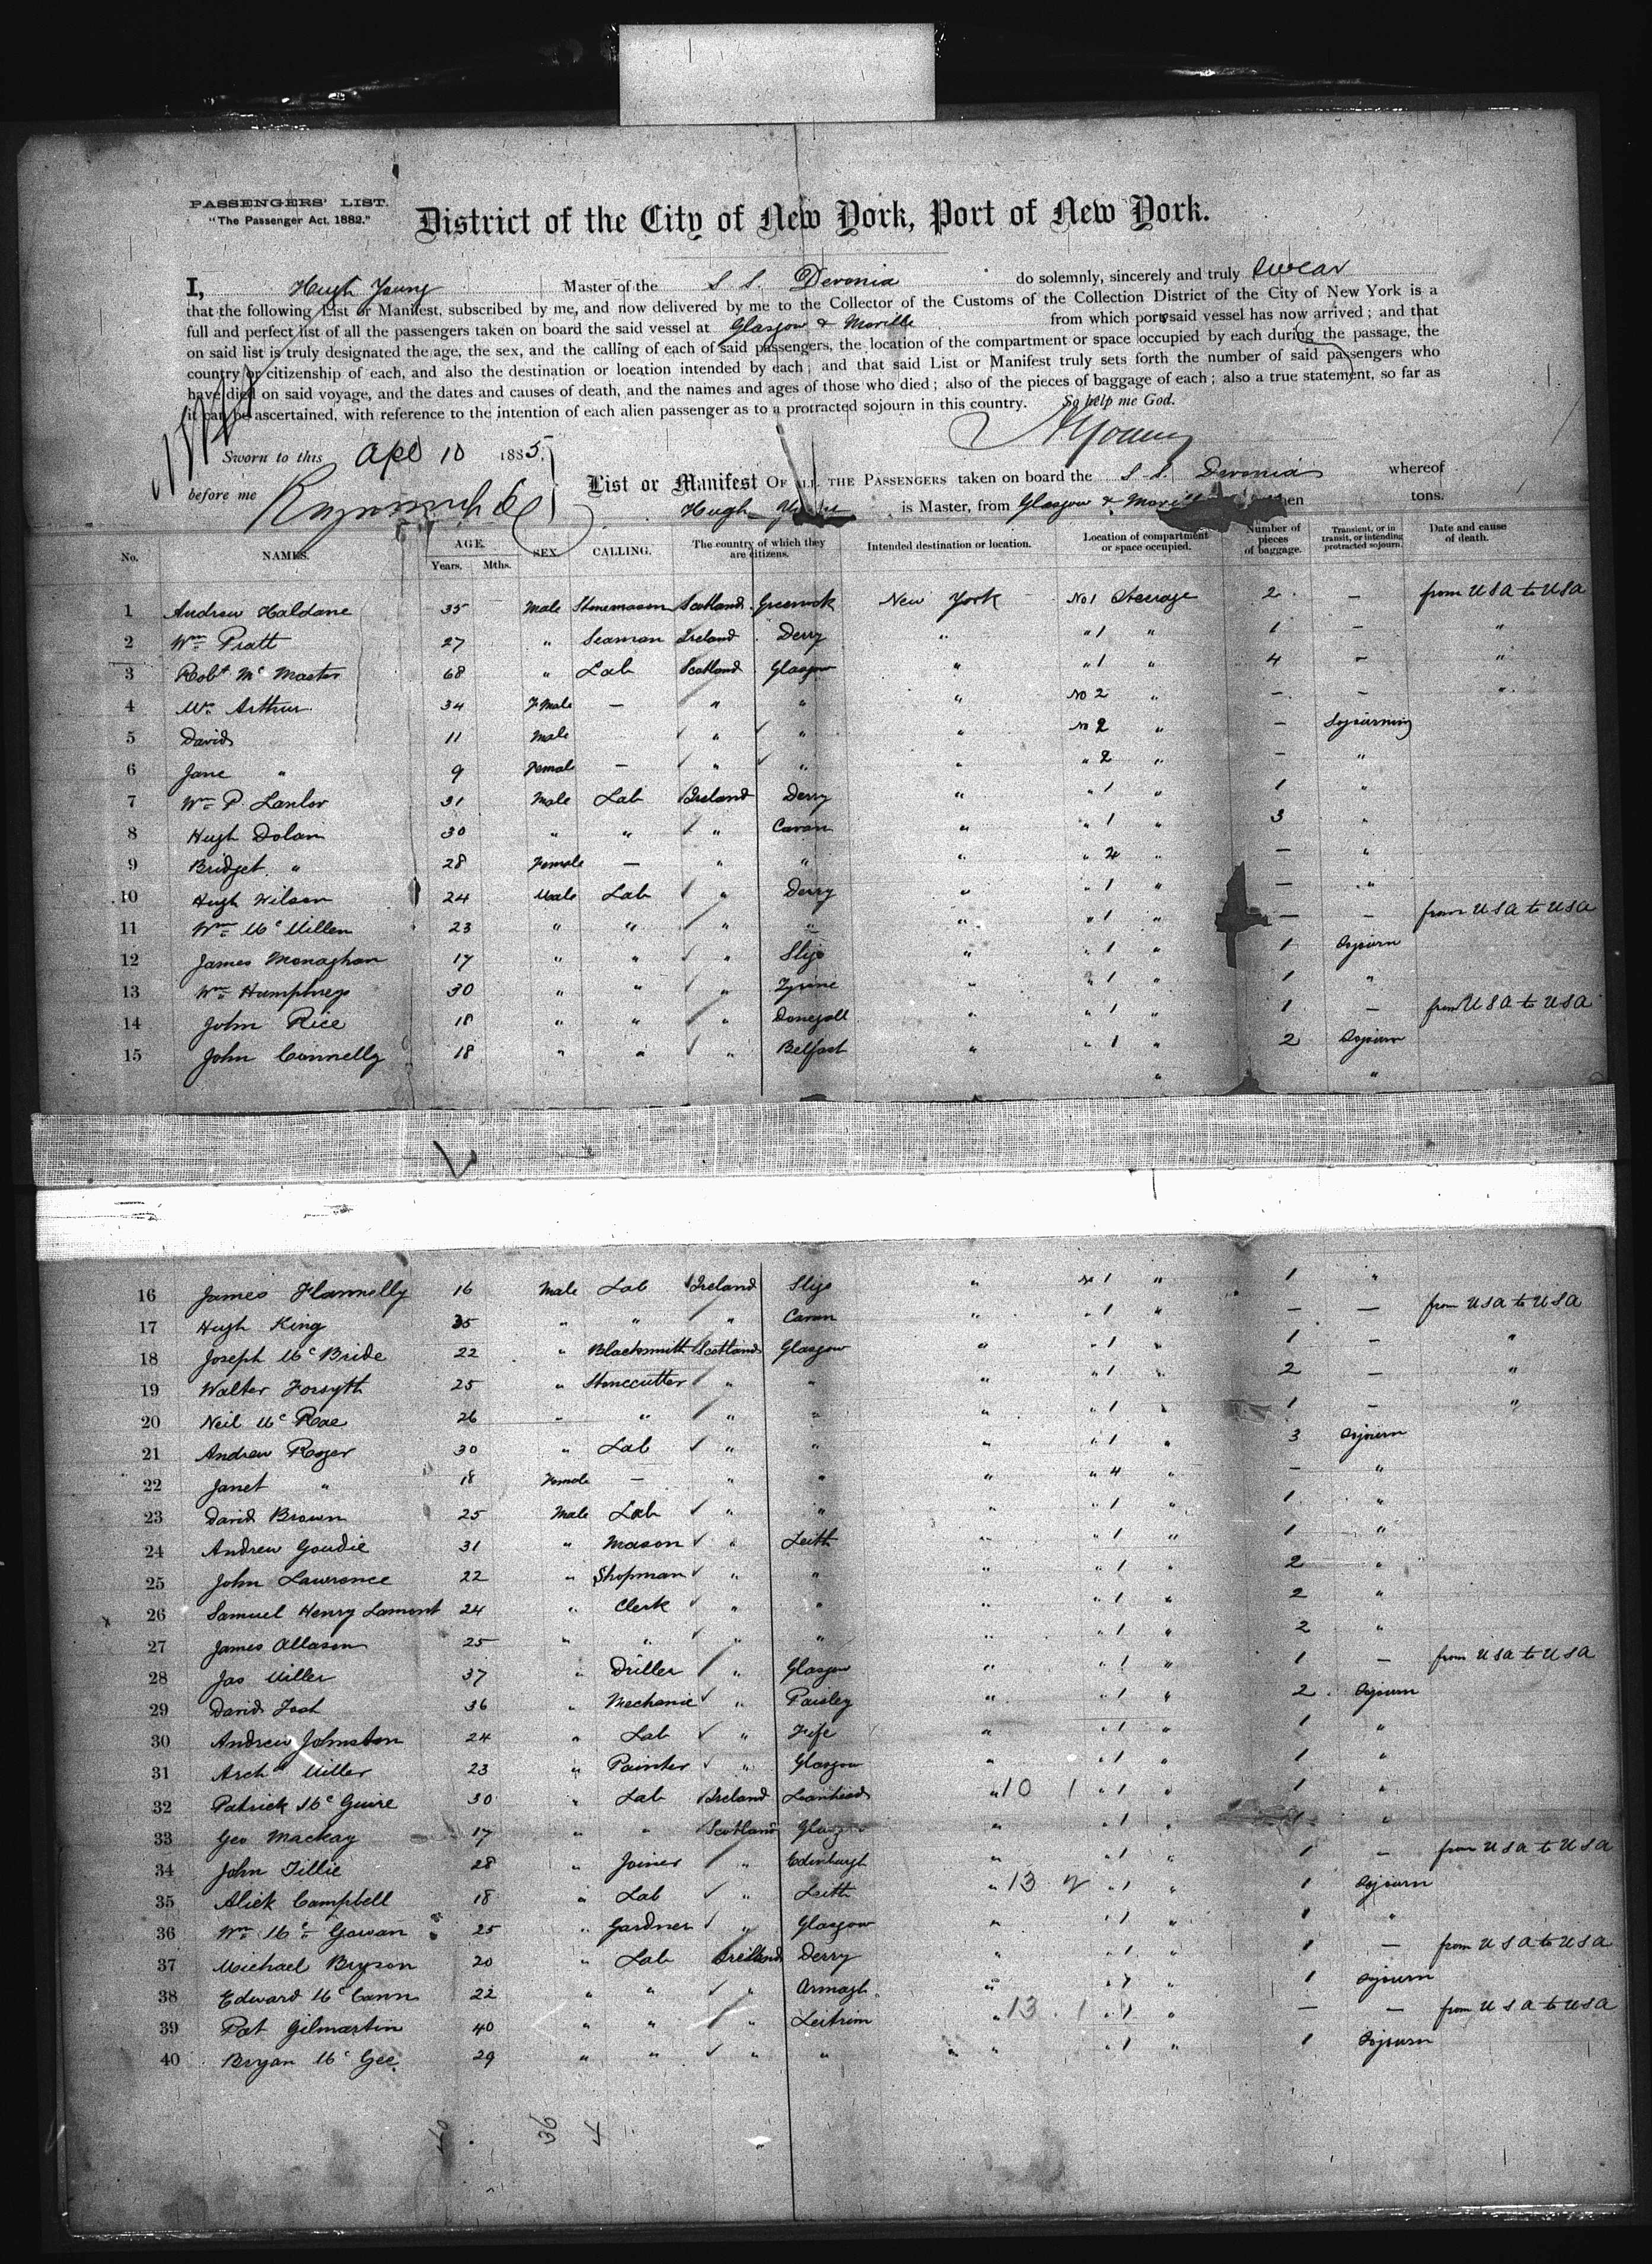 PASSENGERS' LIST.
"The Passenger Act, 1882."
District of the City of New York, Port of New York.
I, Hugh Young Master of the S S. Devonia do solemnly, sincerely and truly swear
that the following List or Manifest, subscribed by me, and now delivered by me to the Collector of the Customs of the Collection District of the City of New York is a
full and perfect list of all the passengers taken on board the said vessel at Glasgow & Moville from which ports said vessel has now arrived; and that
on said list is truly designated the age, the sex, and the calling of each of said passengers, the location of the compartment or space occupied by each during the passage, the
country or citizenship of each, and also the destination or location intended by each; and that said List or Manifest truly sets forth the number of said passengers who
have died on said voyage, and the dates and causes of death, and the names and ages of those who died; also of the pieces of baggage of each; also a true statement, so far as
it can be ascertained, with reference to the intention of each alien passenger as to a protracted sojourn in this country. So help me God.
H Young
Sworn to this Apl 10 1885.
before me
List or Manifest OF ALL THE PASSENGERS taken on board the S. S. Devonia whereof
Hugh is Master, from Glasgow & Moville tons.
No. NAMES. AGE. Years. Mths. SEX. CALLING. The country of which they are citizens. Intended destination or location. Location of compartment or space occupied. Number of pieces of baggage. Transient, or in transit, or intending protracted sojourn. Date and cause of death.
1 Andrew Haldane 35 Male Stonemason Scotland Greenock New York No 1 Steerage 2 – from USA to USA
2 Wm Pratt 27 " Seaman Ireland Derry " " 1 " 1 – "
3 Robt Mc Master 68 " Lab Scotland Glasgow " " 1 " 4 – "
4 Mrs Arthur 34 F Male – " " " No 2 " – – "
5 David 11 Male " " " No 2 " – Sojourning
6 Jane " 9 Female – " " " " 2 " – "
7 Wm P. Lawlor 31 Male Lab Ireland Derry " " 1 " 1 "
8 Hugh Dolan 30 " " " Cavan " " 1 " 3 "
9 Bridget " 28 Female – " " " " " – "
10 Hugh Wilson 24 Male Lab " Derry " " 1 " – "
11 Wm Mc Millen 23 " " " " " " 1 " – – from USA to USA
12 James Monaghan 17 " " " Sligo " " 1 " 1 Sojourn
13 Wm Humphreys 30 " " " Tyrone " " 1 " 1 "
14 John Rice 18 " " " Donegall " " 1 " 1 – from USA to USA
15 John Connelly 18 " " " Belfast " " 1 " 2 Sojourn
" "
16 James Flannelly 16 Male Lab Ireland Sligo " No 1 " 1 "
17 Hugh King 35 " " " Cavan " " 1 " – – from USA to USA
18 Joseph Mc Bride 22 " Blacksmith Scotland Glasgow " " 1 " 1 – "
19 Walter Forsyth 25 " Stonecutter " " " " 1 " 2 – "
20 Neil Mc Rae 26 " " " " " " 1 " 1 – "
21 Andrew Roger 30 " Lab " " " " 1 " 3 Sojourn
22 Janet " 18 Female – " " " " 4 " – "
23 David Brown 25 Male Lab " " " " 1 " 1 "
24 Andrew Goudie 31 " Mason " Leith " " 1 " 1 "
25 John Lawrence 22 " Shopman " " " " 1 " 2 "
26 Samuel Henry Lamont 24 " Clerk " " " " 1 " 2 "
27 James Allason 25 " " " " " " 1 " 2 "
28 Jas Miller 37 " Driller " Glasgow " " 1 " 1 – from USA to USA
29 David 36 " Mechanic " Paisley " " 1 " 2 Sojourn
30 Andrew Johnston 24 " Lab " Fife " " 1 " 1 "
31 Archd Miller 23 " Painter " Glasgow " " 1 " 1 "
32 Patrick Mc Guire 30 " Lab Ireland " 10 1 " 1 " 1 "
33 Geo Mackay 17 " " Scotland Glasgow " " 1 " 1 "
34 John Tillie 28 " Joiner " Edinburgh " " 1 " 1 – from USA to USA
35 Alick Campbell 18 " Lab " Leith " 13 " 1 " 1 Sojourn
36 Wm Mc Gowan 25 " Gardner " Glasgow " " 1 " 1 "
37 Michael Bryson 20 " Lab Ireland Derry " " 1 " 1 – from USA to USA
38 Edward Mc Cann 22 " " " Armagh " " 1 " 1 Sojourn
39 Pat Gilmartin 40 " " " Leitrim " 13 1 " 1 " – – from USA to USA
40 Bryan Mc Gee 29 " " " " " " 1 " 1 Sojourn
40 36 4